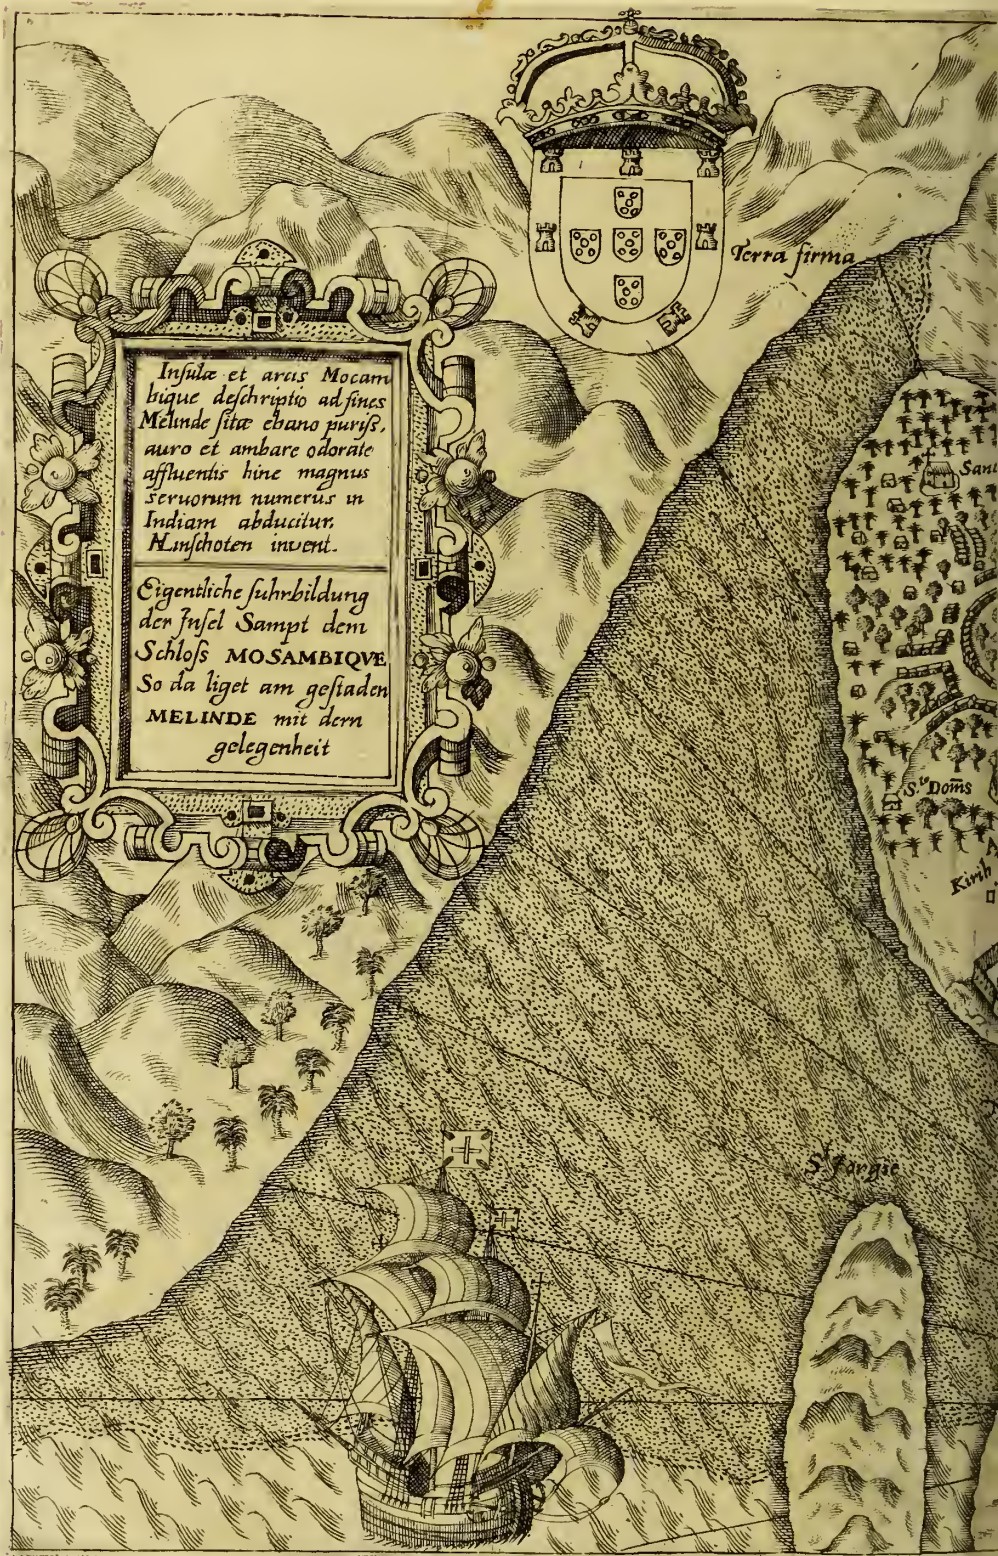 Terra firma
Insulæ et arcis Mocam
bique deschriptio ad fines
Melinde sitæ ebano puriss.
auro et ambare odorate
affluentis hinc magnus
servorum numerus in
Indiam abducitur.
Linschoten invent.
Eigentliche fuhrbildung
der Insel Sampt dem
Schloss MOSAMBIQVE
So da liget am gestaden
MELINDE mit dern
gelegenheit
Sant
S.to Dom̃s
Kirih
St Jorgie